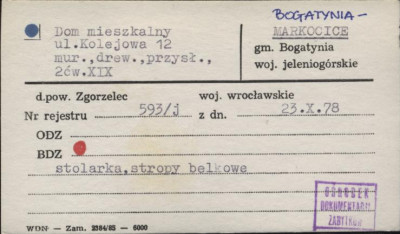 BOGATYNIA-
Dom mieszkalny
ul.Kolejowa 12
mur.,drew.,przysł.,
2ćw.XIX
MARKOCICE
gm. Bogatynia
woj. jeleniogórskie
d.pow. Zgorzelec woj. wrocławskie
Nr rejestru 593/j z dn. 23.X.78
ODZ
BDZ
stolarka,stropy belkowe
OŚRODEK
DOKUMENTACJI
ZABYTKÓW
WDN — Zam. 2584/85 — 6000